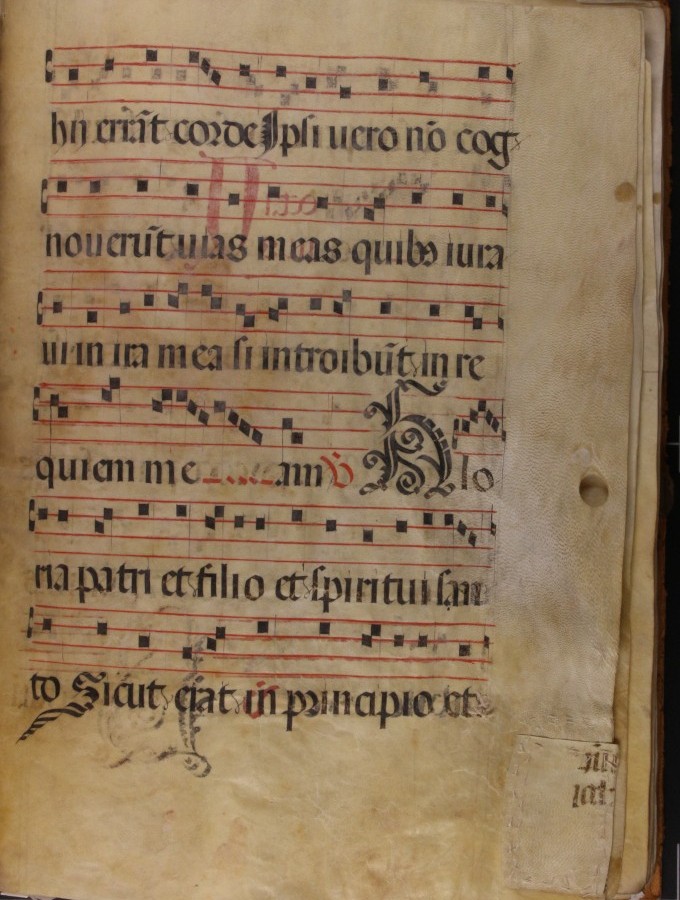 hij errāt corde Ipsi uero nō cog
nouerūt uias meas quibꝰ iura
ui in ira mea si introibūt in re
quiem me am ℣ Glo
ria patri et filio et spiritui san
to Sicut erat in principio et